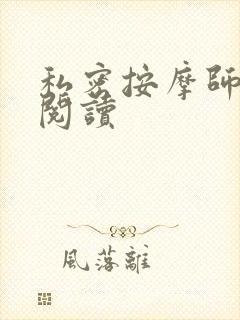 私密按摩師
閱讀
風落離